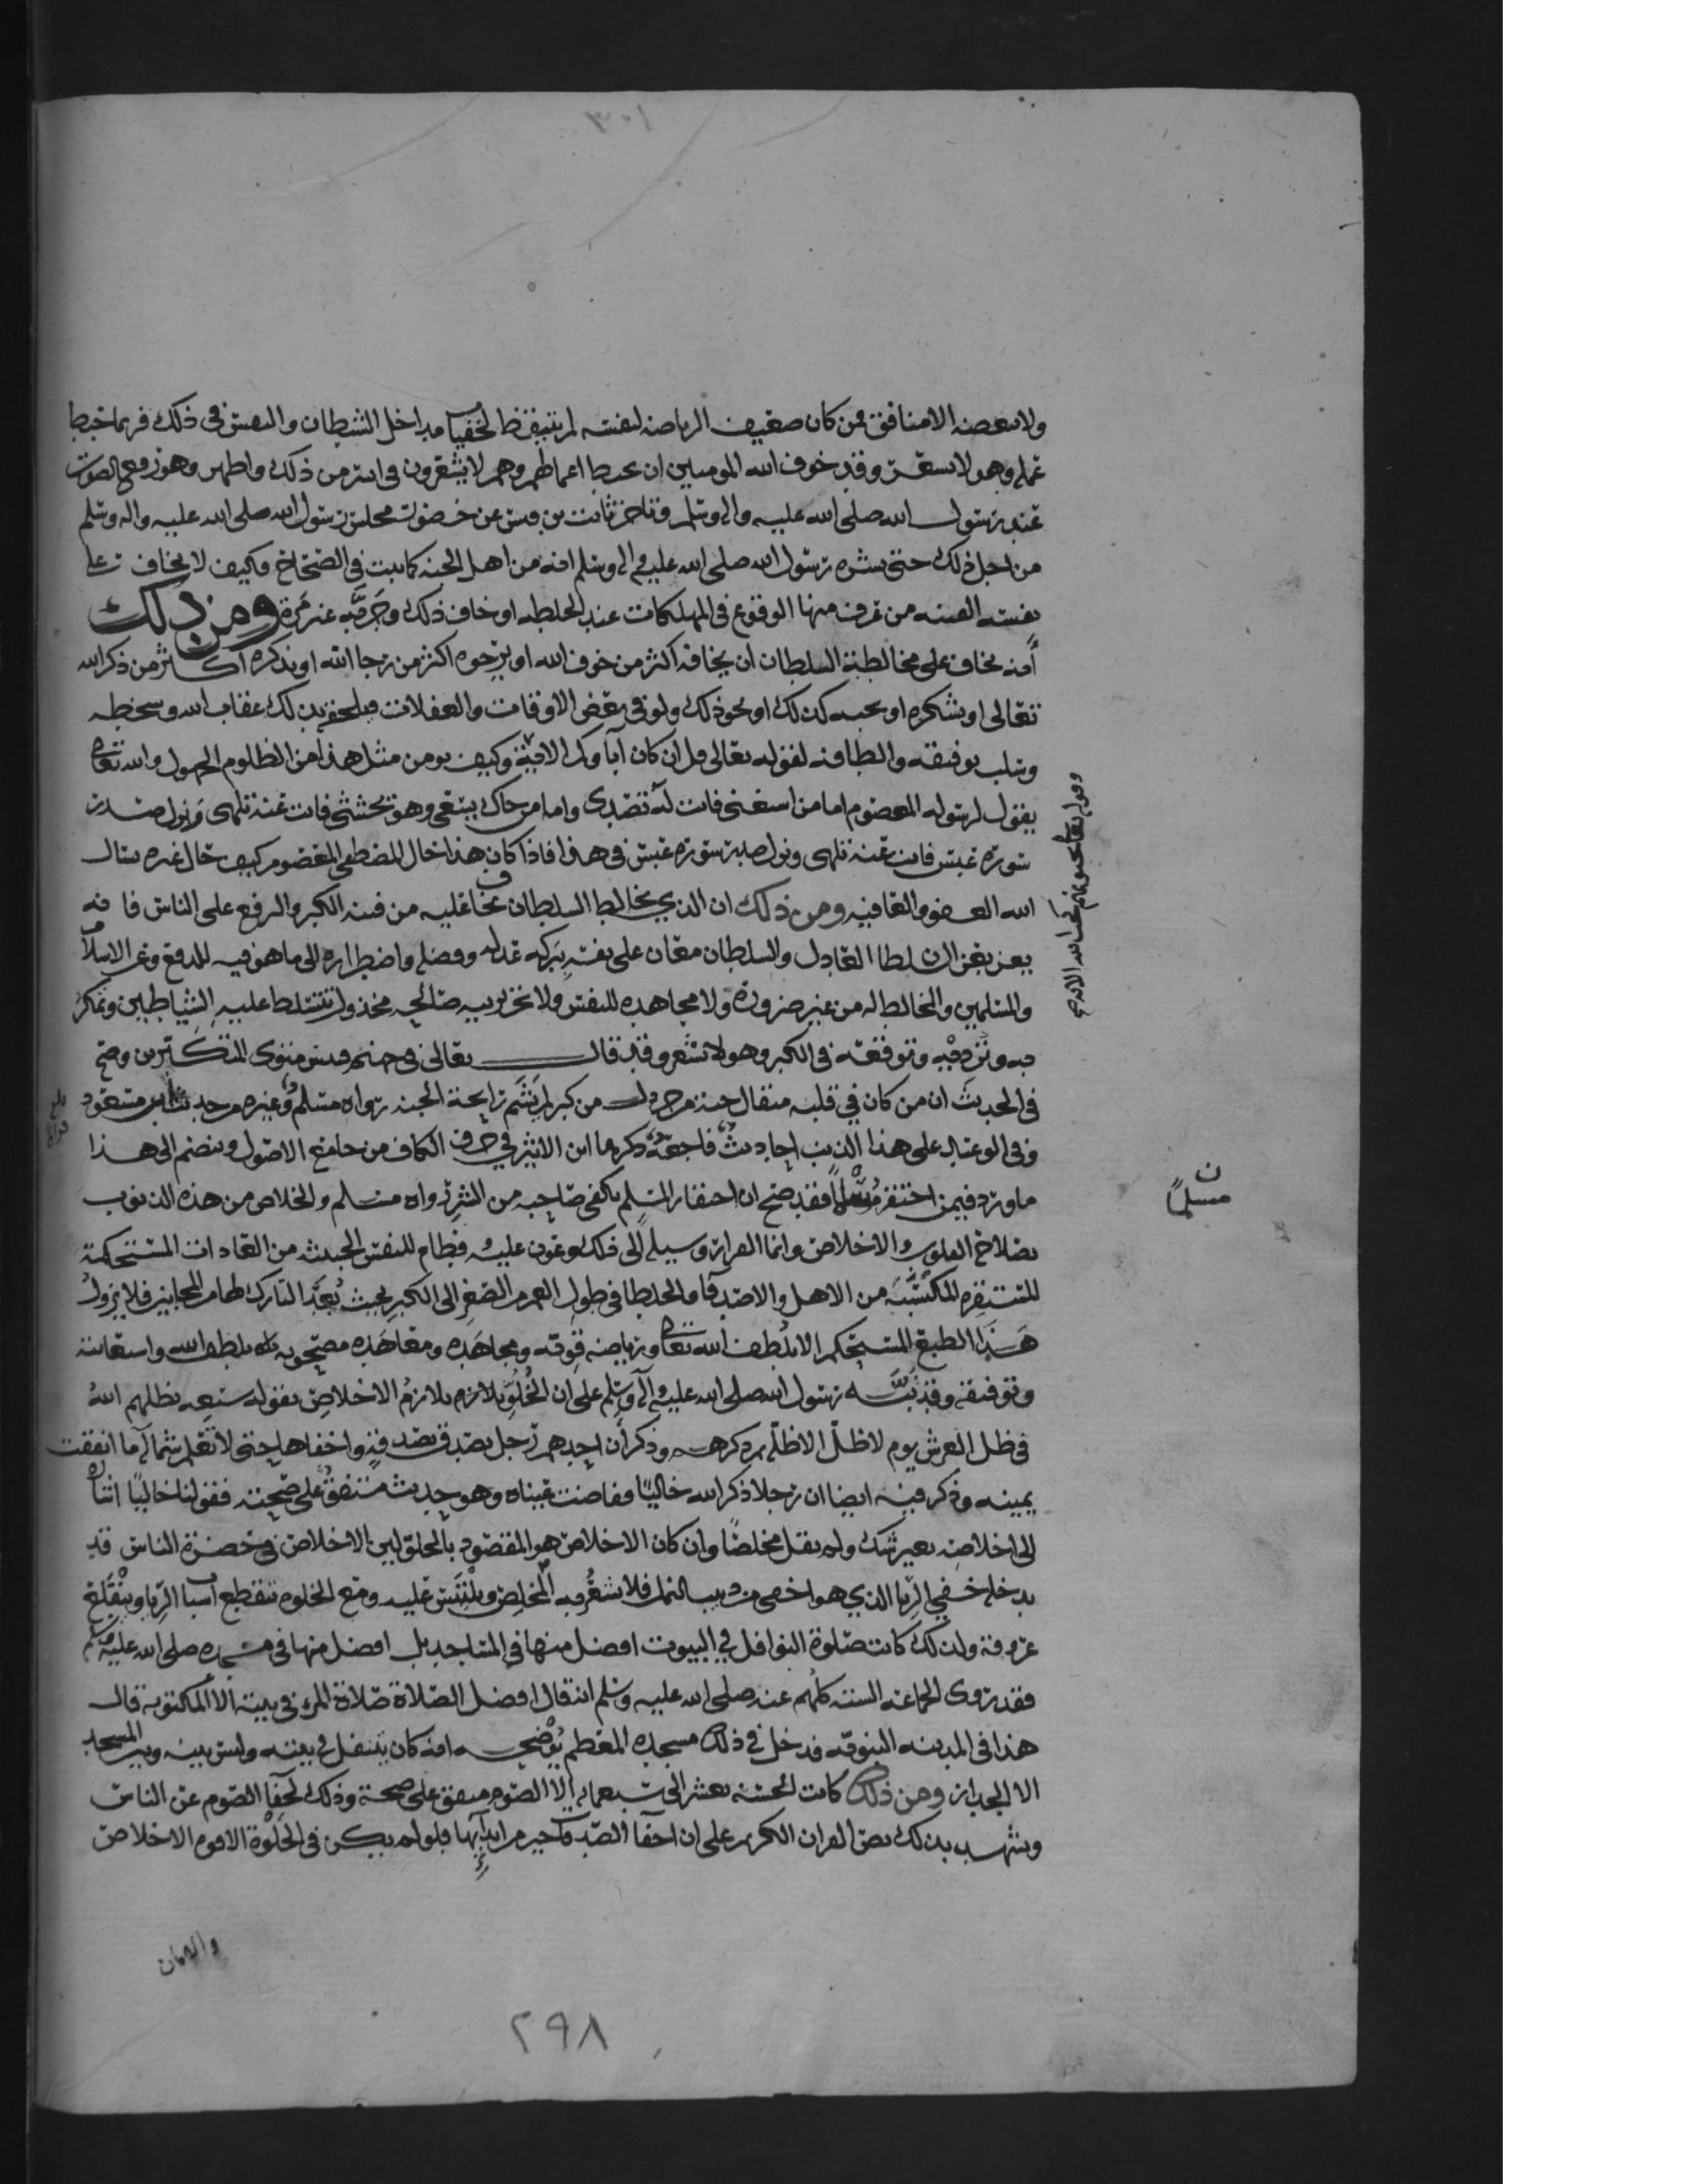 ولا يبغضه الا منافق فمن كان ضعيف الرياضة لنفسه لم يتيقظ لخفيات مداخل الشيطان والنفس في ذلك فربما حبط
عمله وهو لا يشعر وقد خوف الله المومنين ان تحبط اعمالهم وهم لا يشعرون في ايسر من ذلك واظهر وهو رفع الصوت
عند رسول الله صلى الله عليه واله وسلم وتاخر ثابت بن قيس عن حضور مجلس رسول الله صلى الله عليه واله وسلم
من اجل ذلك حتى بشره رسول الله صلى الله عليه واله وسلم انه من اهل الجنة كما ثبت في الصحاح وكيف لا يخاف على
نفسه الفتنه من عرف منها الوقوع في المهلكات عند الخلطه او خاف ذلك وجربه غير مرة ومن ذلك
أنه يخاف على مخالطة السلطان ان يخافه اكثر من خوف الله او يرجوه اكثر من رجا الله او يذكره اكثر من ذكر الله
تعالى او يشكره او يحبه كذلك او نحو ذلك ولو في بعض الاوقات والغفلات فيلحقه بذلك عقاب الله وسخطه
وسلب توفيقه والطافه لقوله تعالى قل ان كان آباوكم الاية وكيف يومن مثل هذا من الظلوم الجهول والله تعالى
يقول لرسوله المعصوم اما من استغنى فانت له تصدى واما من جاك يسعى وهو يخشى فانت عنه تلهى ونزل صدر
سورة عبس فانت عنه تلهى ونزل صدر سورة عبس في هذا فاذا كان هذا حال المصطفى المعصوم كيف حال غيره نسال
الله العفو والعافيه ومن ذلك ان الذي يخالط السلطان يخاف عليه من فتنه الكبر والترفع على الناس فانه
يعز بعز السلطان العادل والسلطان معان على نفسه ببركه عدله وفضله واضطراره الى ما هو فيه للدفع عن الاسلام
والمسلمين والمخالط له من غير ضرورة ولا مجاهده للنفس ولا تحر لنيه صالحه مخذول تتسلط عليه الشياطين وتمكر
به وتزدريه وتوقعه في الكبر وهو لا يشعر وقد قال تعالى في جهنم فبئس مثوى المتكبرين وصح
في الحديث ان من كان في قلبه مثقال حبة من خردل من كبر لم يشم رايحة الجنه رواه مسلم وغيره من حديث ابن مسعود
وفي الوعيد على هذا الذنب احاديث فاجعة ذكرها ابن الاثير في حرف الكاف من جامع الاصول وينضم الى هذا
ما ورد فيمن احتقر مسلما فقد صح ان احتقار المسلم يكفي صاحبه من الشر رواه مسلم والخلاص من هذه الذنوب
بصلاح القلوب والاخلاص وانما الفرار وسيله الى ذلك وعون عليه وفطام للنفس الخبيثه من العادات المستحكمة
المستنفره المكتسبة من الاهل والاصدقا والخلطا في طول العمر من الصغر الى الكبر بحيث يعد التارك لها من المجانين فلا يزول
هذا الطبع المستحكم الا بلطف الله تعالى ورياضه قويه ومجاهده ومعاهده مصحوبه بلطف الله واستعانته
وتوفيقه وقد نبه رسول الله صلى الله عليه واله وسلم على ان الخلو يلازم يلازم الاخلاص بقوله سبعه يظلهم الله
في ظل العرش يوم لا ظل الا ظله ثم ذكرهم وذكر أن احدهم رجل تصدق بصدقة واخفاها حتى لا تعلم شماله ما انفقت
يمينه وذكر فيه ايضا ان رجلا ذكر الله خاليا ففاضت عيناه وهو حديث متفق على صحته فقوله خاليا اشارة
الى اخلاصه بغير شك ولم يقل مخلصا وان كان الاخلاص هو المقصود بالخلق لان الاخلاص في حضرة الناس قد
يدخله خفي الريا الذي هو اخفى من دبيب النمل فلا يشعر به المخلص ويلتبس عليه ومع الخلوه تنقطع اسباب الريا وينقلع
عروقه ولذلك كانت صلوة النوافل في البيوت افضل منها في المساجد بل افضل منها في مسجده صلى الله عليه وسلم
فقد روى الجماعه الستة كلهم عنه صلى الله عليه وسلم انه قال افضل الصلاة صلاة المرء في بيته الا المكتوبة قال
هذا في المدينه النبويه فدخل في ذلك مسجده المعظم يوضحه انه كان يتنفل في بيته وليس بينه وبين المسجد
الا الجدار ومن ذلك كانت الحسنة بعشر الى سبعمايه الا الصوم متفق على صحته وذلك لخفا الصوم عن الناس
ويشهد بذلك نص القران الكريم على ان اخفا الصدقات خير من ابدآئها فلو لم يكن في الخلوة الا قوم الاخلاص
ن
مسلما
والامان
٢٩٨